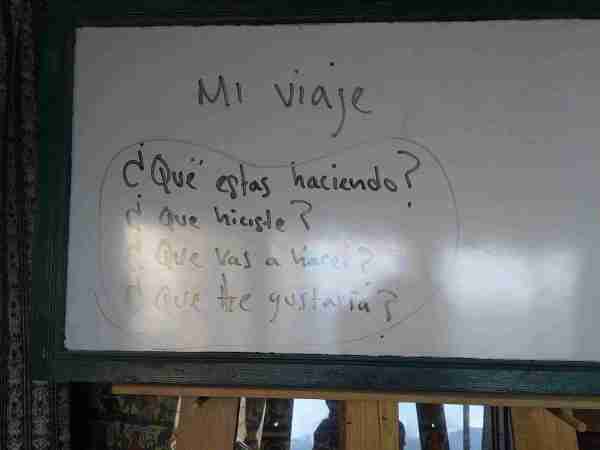 Mi viaje
¿Qué estas haciendo?
¿Que hiciste?
¿Que vas a hacer?
¿Que te gustaria?